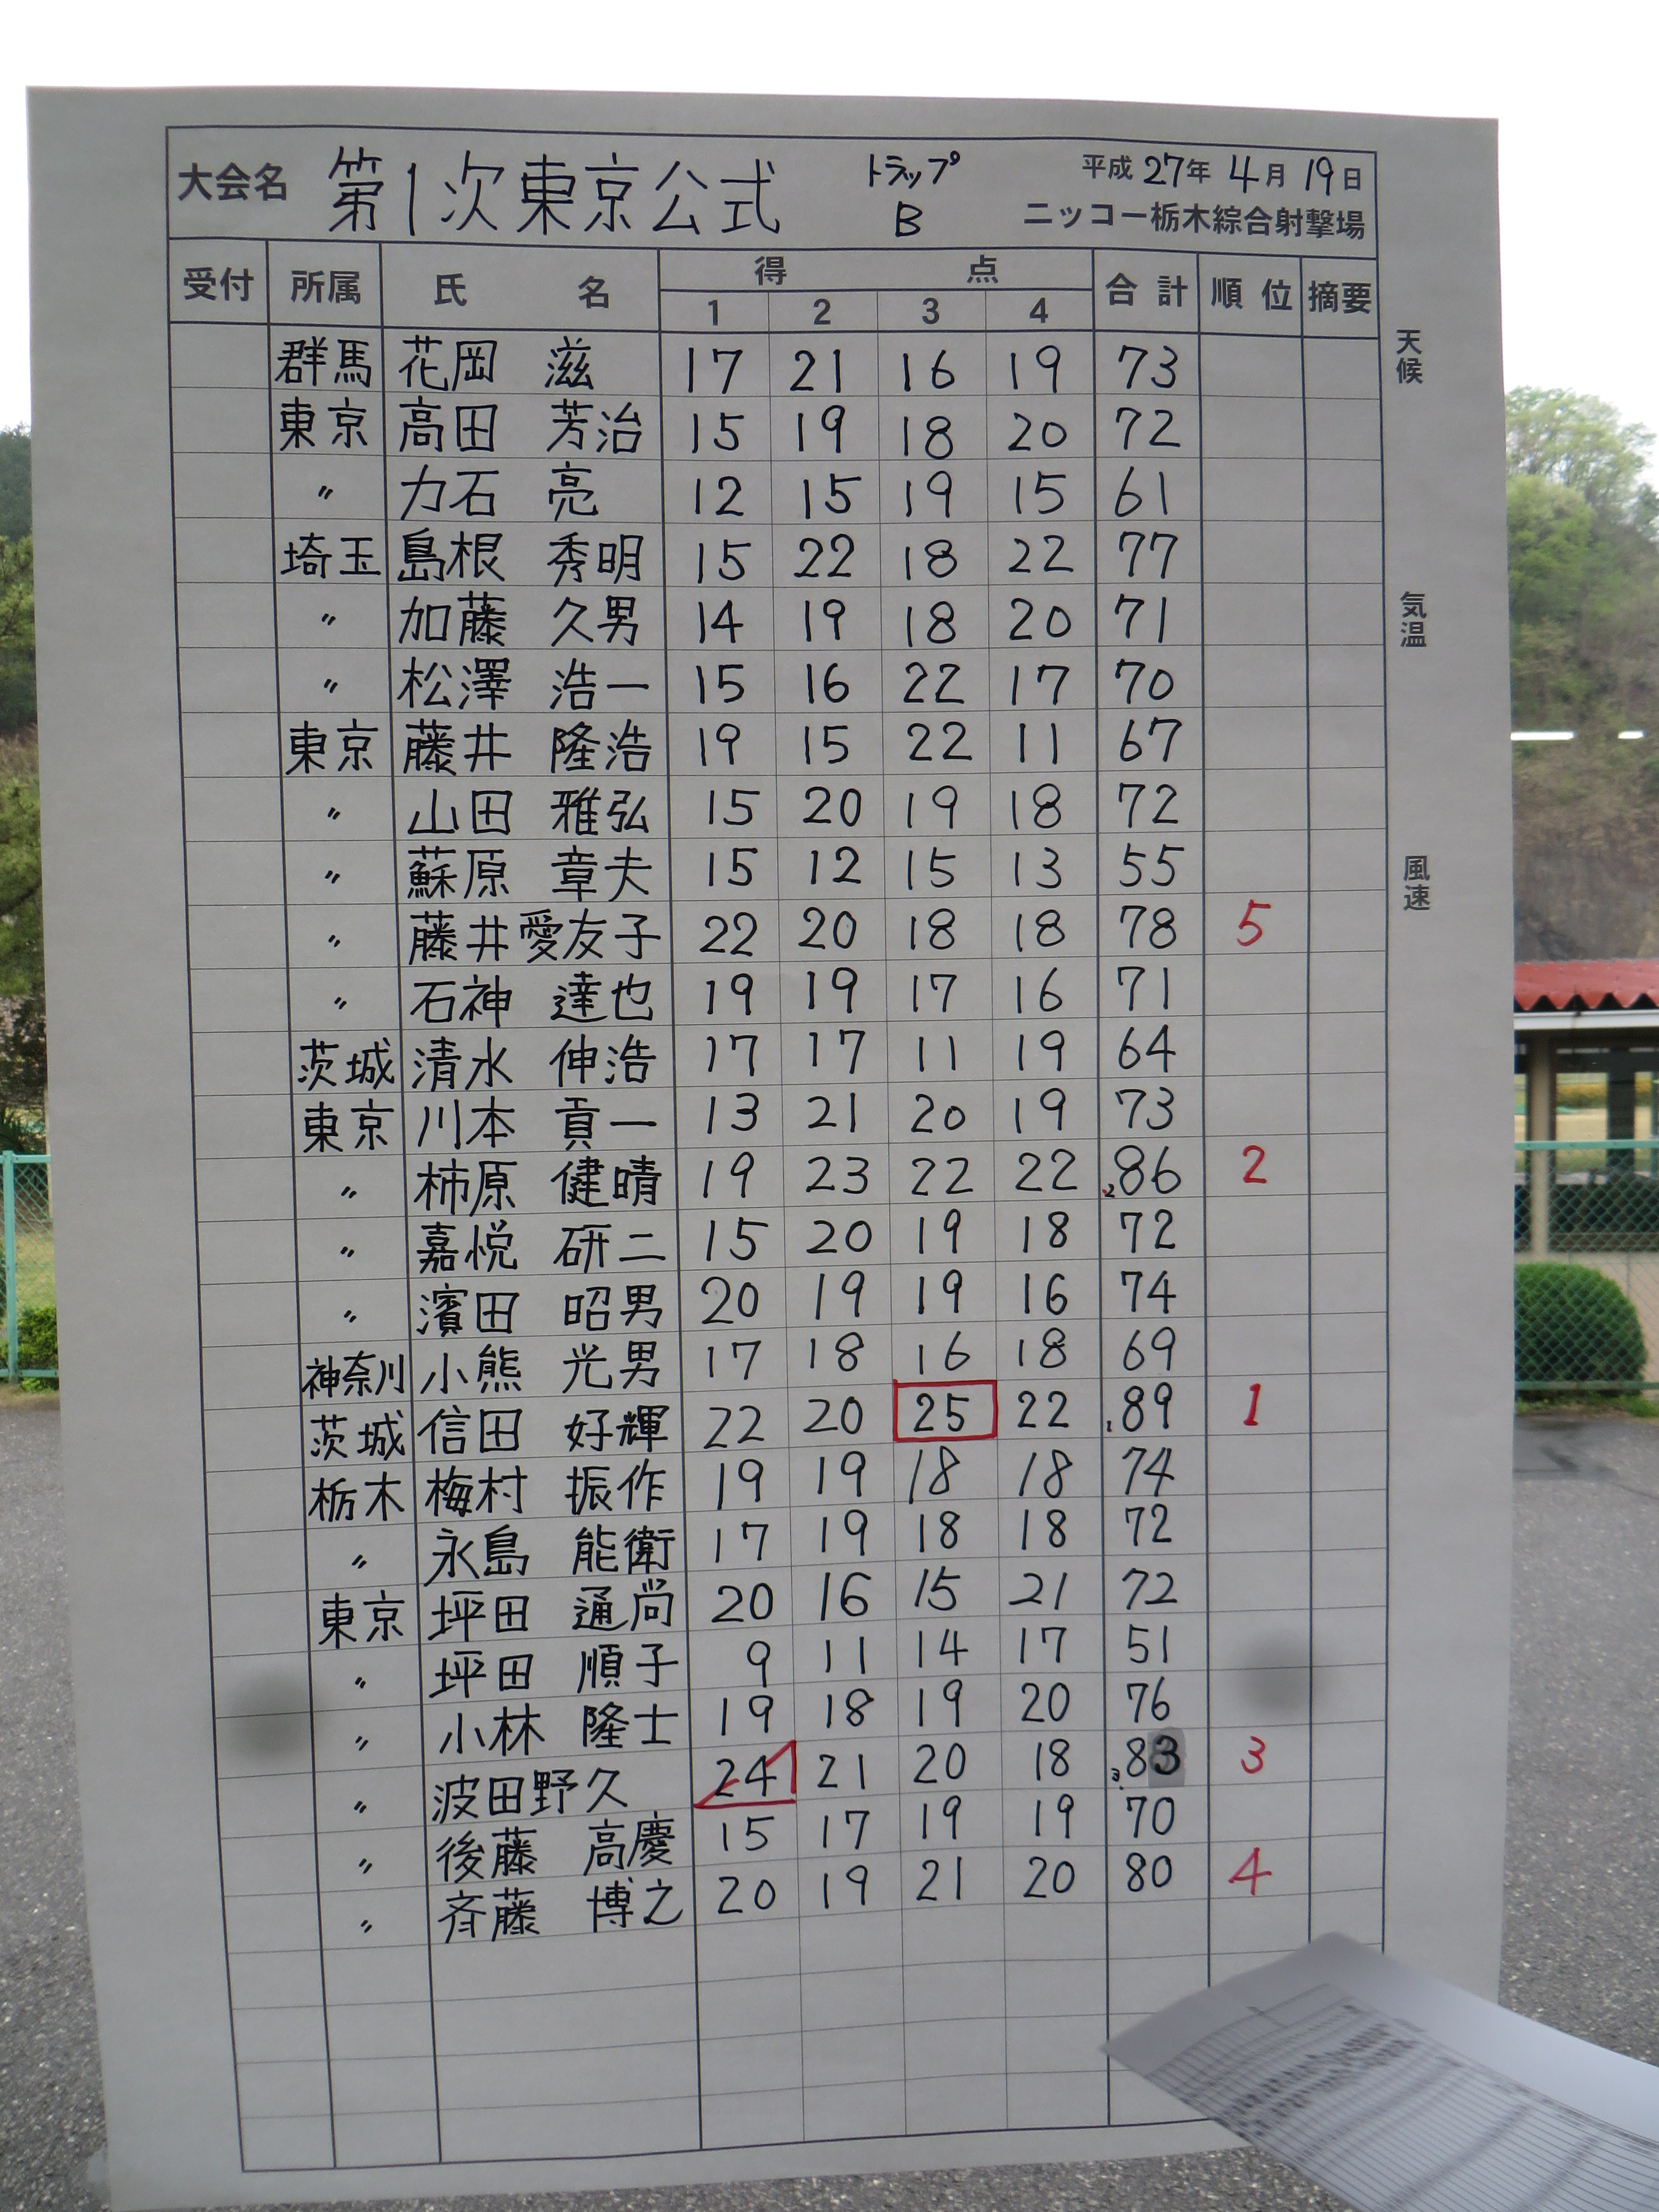 大会名 第1次東京公式 トラップ B 平成27年4月19日
ニッコー栃木綜合射撃場
受付 所属 氏名 得点 合計 順位 摘要
1 2 3 4
群馬 花岡 滋 17 21 16 19 73
東京 高田 芳治 15 19 18 20 72
〃 力石 亮 12 15 19 15 61
埼玉 島根 秀明 15 22 18 22 77
〃 加藤 久男 14 19 18 20 71
〃 松澤 浩一 15 16 22 17 70
東京 藤井 隆浩 19 15 22 11 67
〃 山田 雅弘 15 20 19 18 72
〃 蘇原 章夫 15 12 15 13 55
〃 藤井愛友子 22 20 18 18 78 5
〃 石神 達也 19 19 17 16 71
茨城 清水 伸浩 17 17 11 19 64
東京 川本 貢一 13 21 20 19 73
〃 柿原 健晴 19 23 22 22 2 86 2
〃 嘉悦 研二 15 20 19 18 72
〃 濱田 昭男 20 19 19 16 74
神奈川 小熊 光男 17 18 16 18 69
茨城 信田 好輝 22 20 25 22 1 89 1
栃木 梅村 振作 19 19 18 18 74
〃 永島 能衛 17 19 18 18 72
東京 坪田 通尚 20 16 15 21 72
〃 坪田 順子 9 11 14 17 51
〃 小林 隆士 19 18 19 20 76
〃 波田野久 24 21 20 18 3 83 3
〃 後藤 高慶 15 17 19 19 70
〃 斉藤 博之 20 19 21 20 80 4
天候
気温
風速